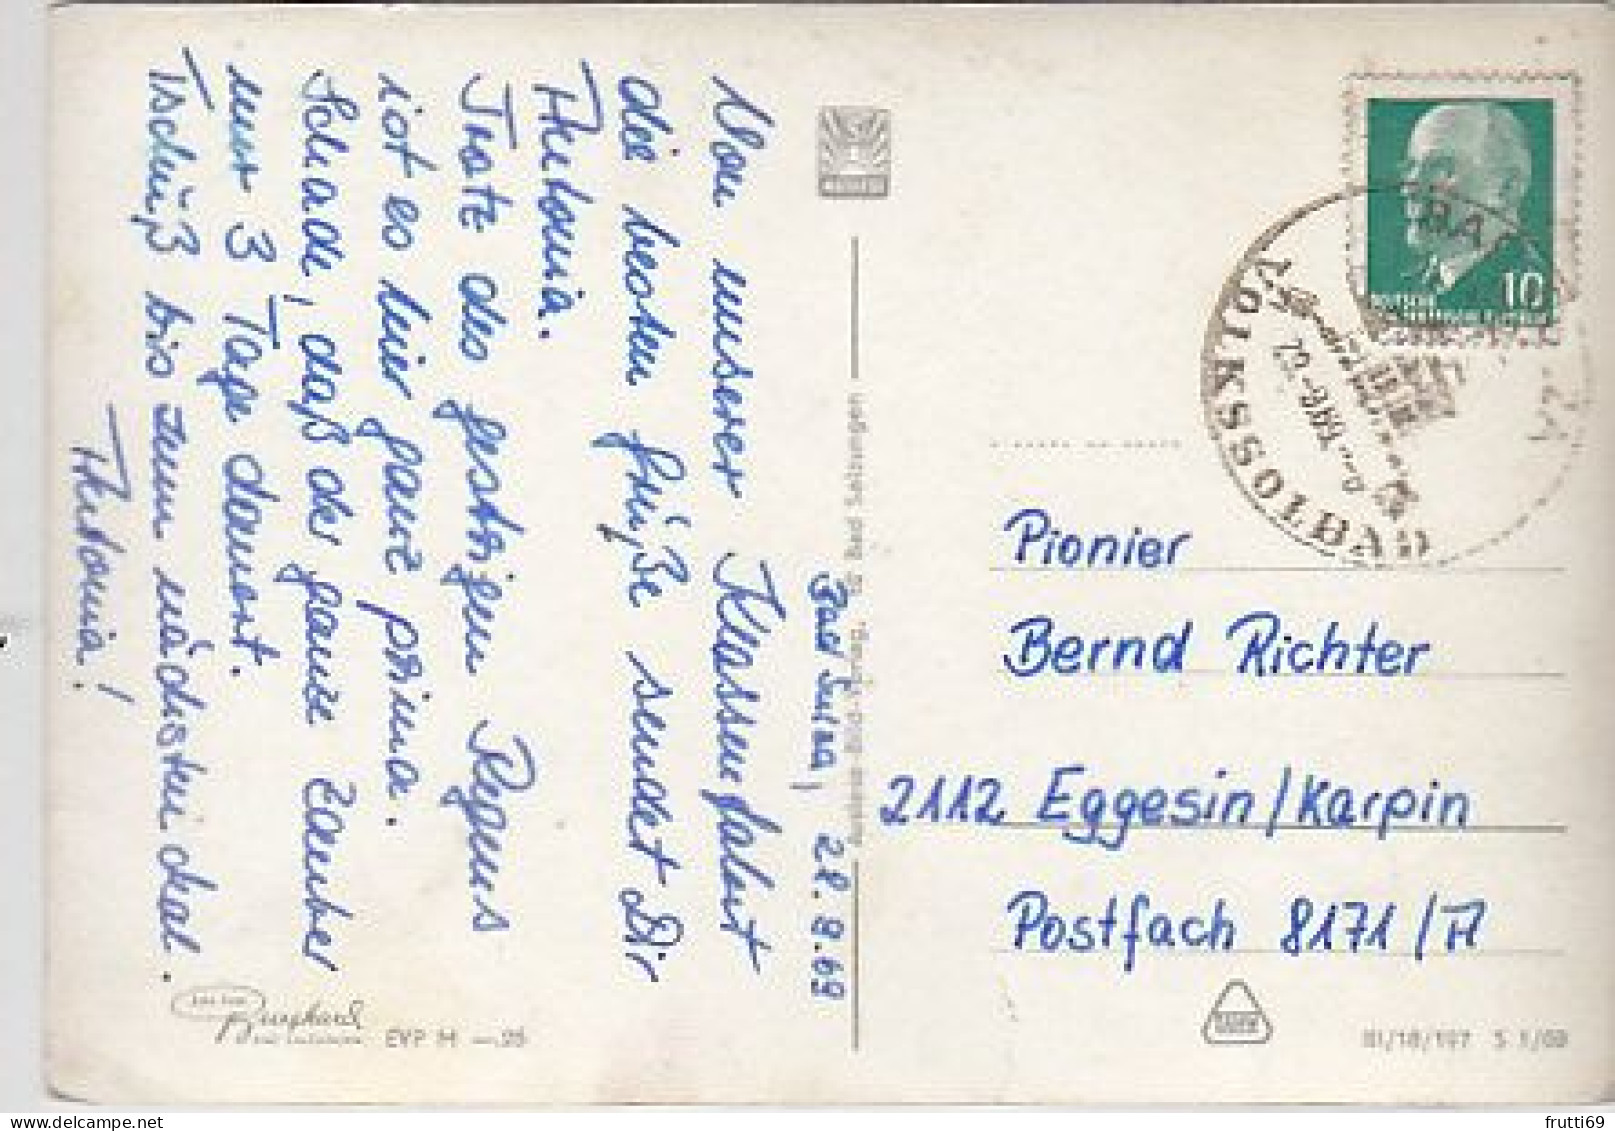 Bad Sulza, 28.9.69
Von unserer Klassenfahrt
die besten Grüße sendet Dir
Antonia.
Trotz des gestrigen Regens
ist es hier ganz prima.
Schade, daß der ganze Zauber
nur 3 Tage dauert.
Tschüß bis zum nächsten Mal.
Antonia!
EVP M -.25
Bad Salzungen
10
VOLKSSOLBAD
Pionier
Bernd Richter
2112 Eggesin/Karpin
Postfach 8171/A
III/18/197 S 1/69
frutti69